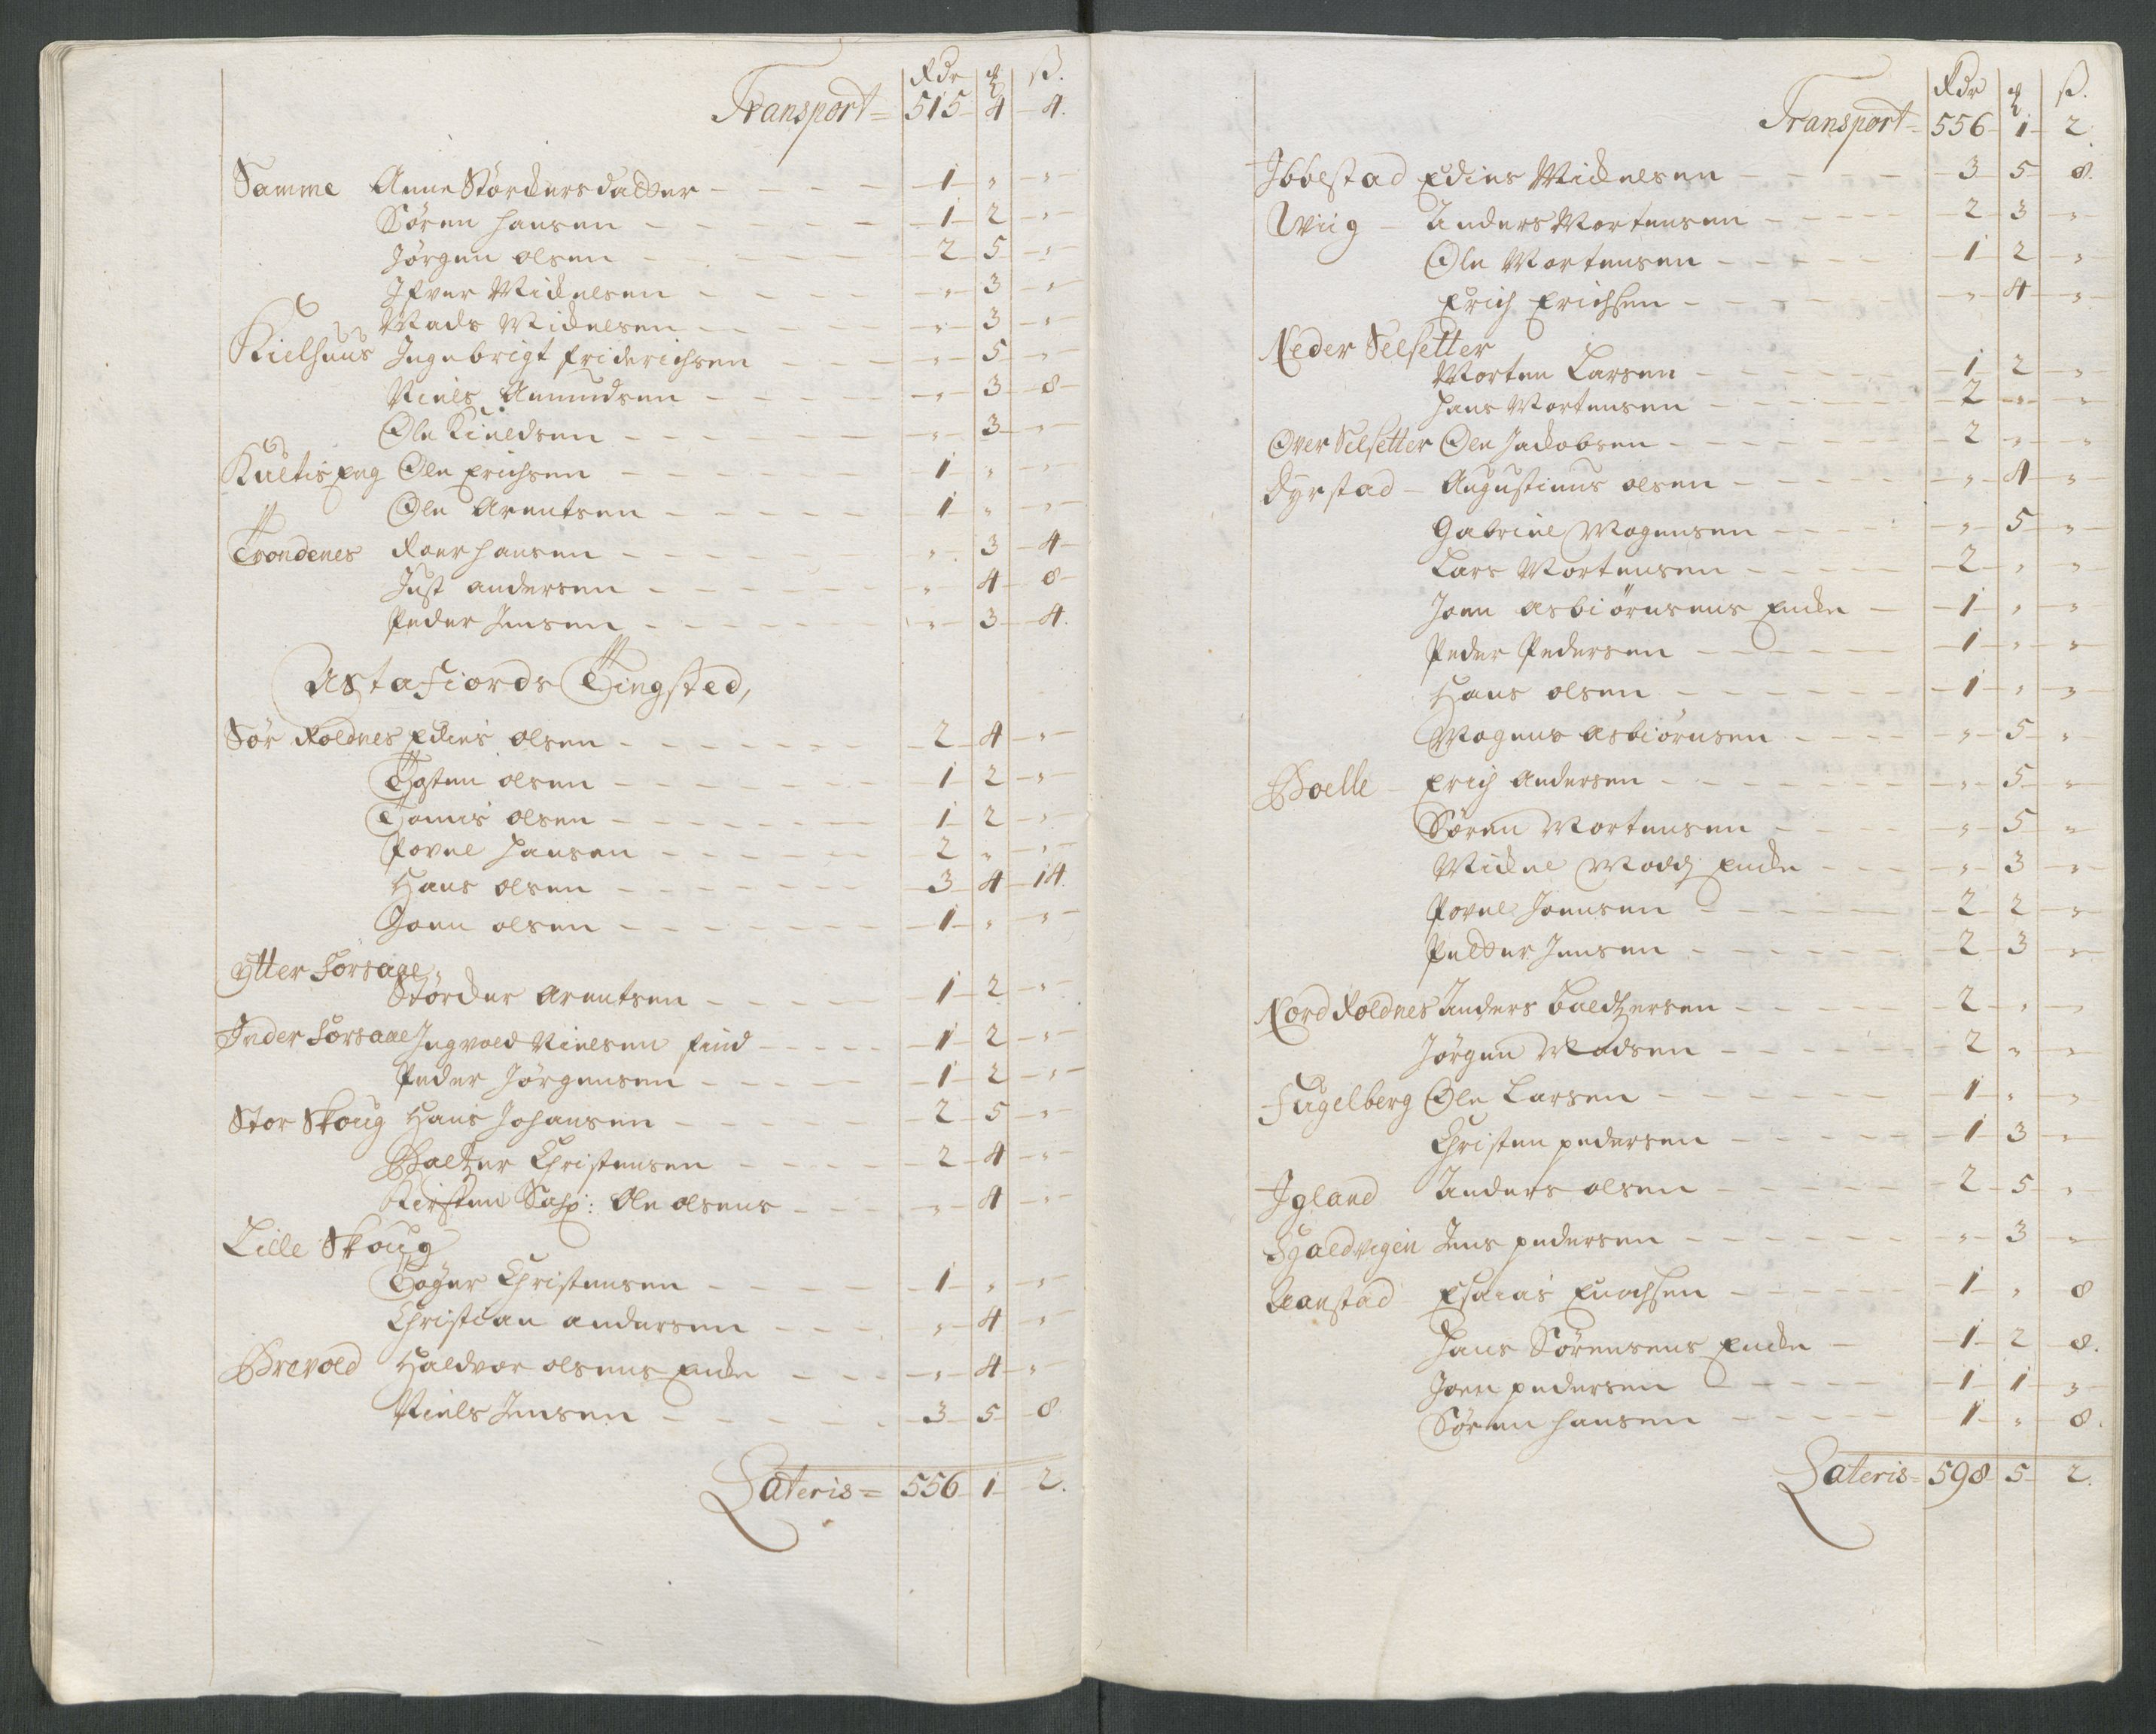 Rdr ₰ ß.
Transport = 515 - 4 - 4.
Samme Anne Störckersdatter - 1 - " - "
Sören Hansen - 1 - 2 - "
Jörgen Olsen - 2 - 5 - "
Ifver Mickelsen - " - 3 - "
Mads Mickelsen - " - 3 - "
Kielhuus Ingebrigt Friderichsen - " - 5 - "
Niels Amundsen - " - 3 - 8
Ole Kieldsen - " - 3 - "
Kultis Eng Ole Erichsen - 1 - " - "
Ole Arentsen - 1 - " - "
Trondenes Roer Hansen - " - 3 - 4
Just Andersen - " - 4 - 8
Peder Jensen - " - 3 - 4.
Astafiords Tingsted,
Sör Roldnes Edies Olsen - 2 - 4 - "
Tosten Olsen - 1 - 2 - "
Tomis Olsen - 1 - 2 - "
Povel Hansen - 2 - " - "
Hans Olsen - 3 - 4 - 14
Joen Olsen - 1 - " - "
Ytter Forsaae
Störcker Arentsen - 1 - 2 - "
Inder Forsaae Ingvold Nielsen Find - 1 - 2 - "
Peder Jörgensen - 1 - 2 - "
Stor Skoug Hans Johansen - 2 - 5 - "
Baltzer Christensen - 2 - 4 - "
Kirsten Ole Olsens - " - 4 - "
Lille Skoug
Töger Christensen - 1 - " - "
Christian Andersen - " - 4 - "
Brevold Haldvor Olsens Encke - " - 4 - "
Niels Jensen - 3 - 5 - 8
Lateris = 556 - 1 - 2.
Rdr ₰ ß.
Transport - 556 - 1 - 2
Ibbestad Edies Mickelsen - 3 - 5 - 8.
Wiig - Anders Mortensen - 2 - 3 - "
Ole Mortensen - 1 - 2 - "
Erich Erichsen - " - 4 - "
Neder Selsetter
Morten Larsen - 1 - 2 - "
Hans Mortensen - 2 - " - "
Over Selsetter Ole Jackobsen - 2 - " - "
Dyrstad - Augustinus Olsen - " - 4 - "
Gabriel Mogensen - " - 5 - "
Lars Mortensen - 2 - " - "
Joen Asbiörnsens Encke - 1 - " - "
Peder Pedersen - 1 - " - "
Hans Olsen - 1 - " - "
Mogens Asbiörnsen - " - 5 - "
Bolle - Erich Andersen - " - 5 - "
Sören Mortensen - " - 5 - "
Mickel Encke - " - 3 - "
Povel Joensen - 2 - 2 - "
Petter Jensen - 2 - 3 - "
Nord Roldnes Anders Baldtzersen - 2 - " - "
Jörgen Madsen - 2 - " - "
Fugelberg Ole Larsen - 1 - " - "
Christen Pedersen - 1 - 3 - "
Igland Anders Olsen - 2 - 5 - "
Jens Pedersen - " - 3 - "
Aanstad Esaias Enochsen - 1 - " - 8
Hans Sörensens Encke - 1 - 2 - 8.
Joen Pedersen - 1 - 1 - "
Sören Hansen - 1 - " - 8.
Lateris = 598 - 5 - 2.